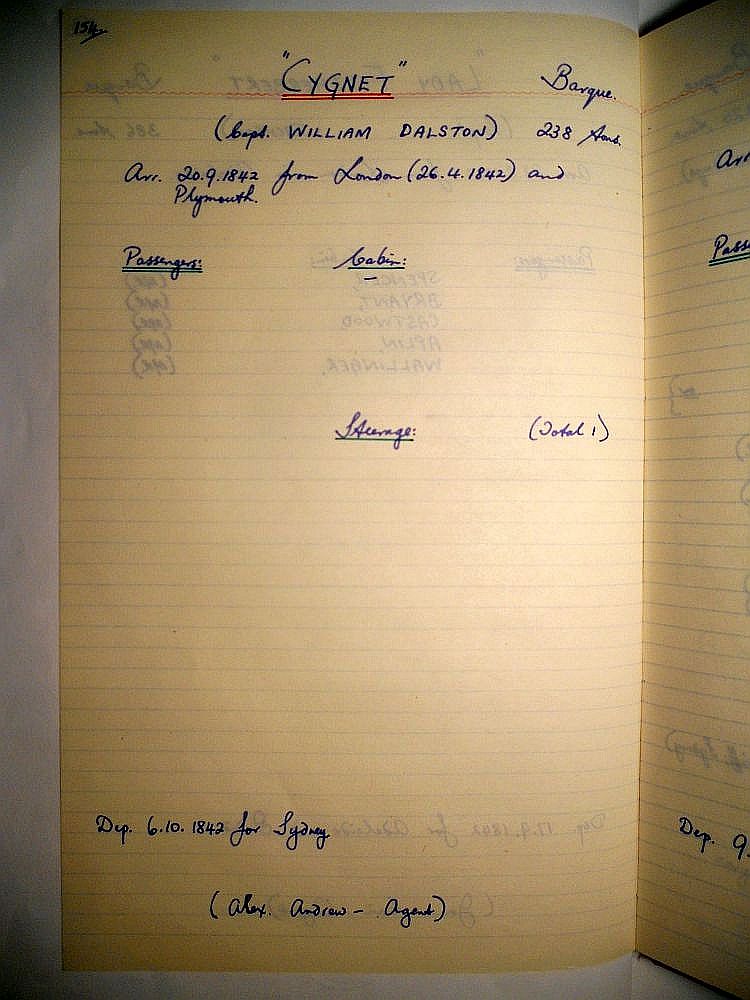 154
"CYGNET" Barque.
(Capt. WILLIAM DALSTON) 238 tons.
Arr. 20.9.1842 from London (26.4.1842) and
Plymouth.
Passengers: Cabin:
–
Steerage: (Total 1)
Dep. 6.10.1842 for Sydney
(Alex. Andrew – Agent)
Arr
Passe
Dep. 9.